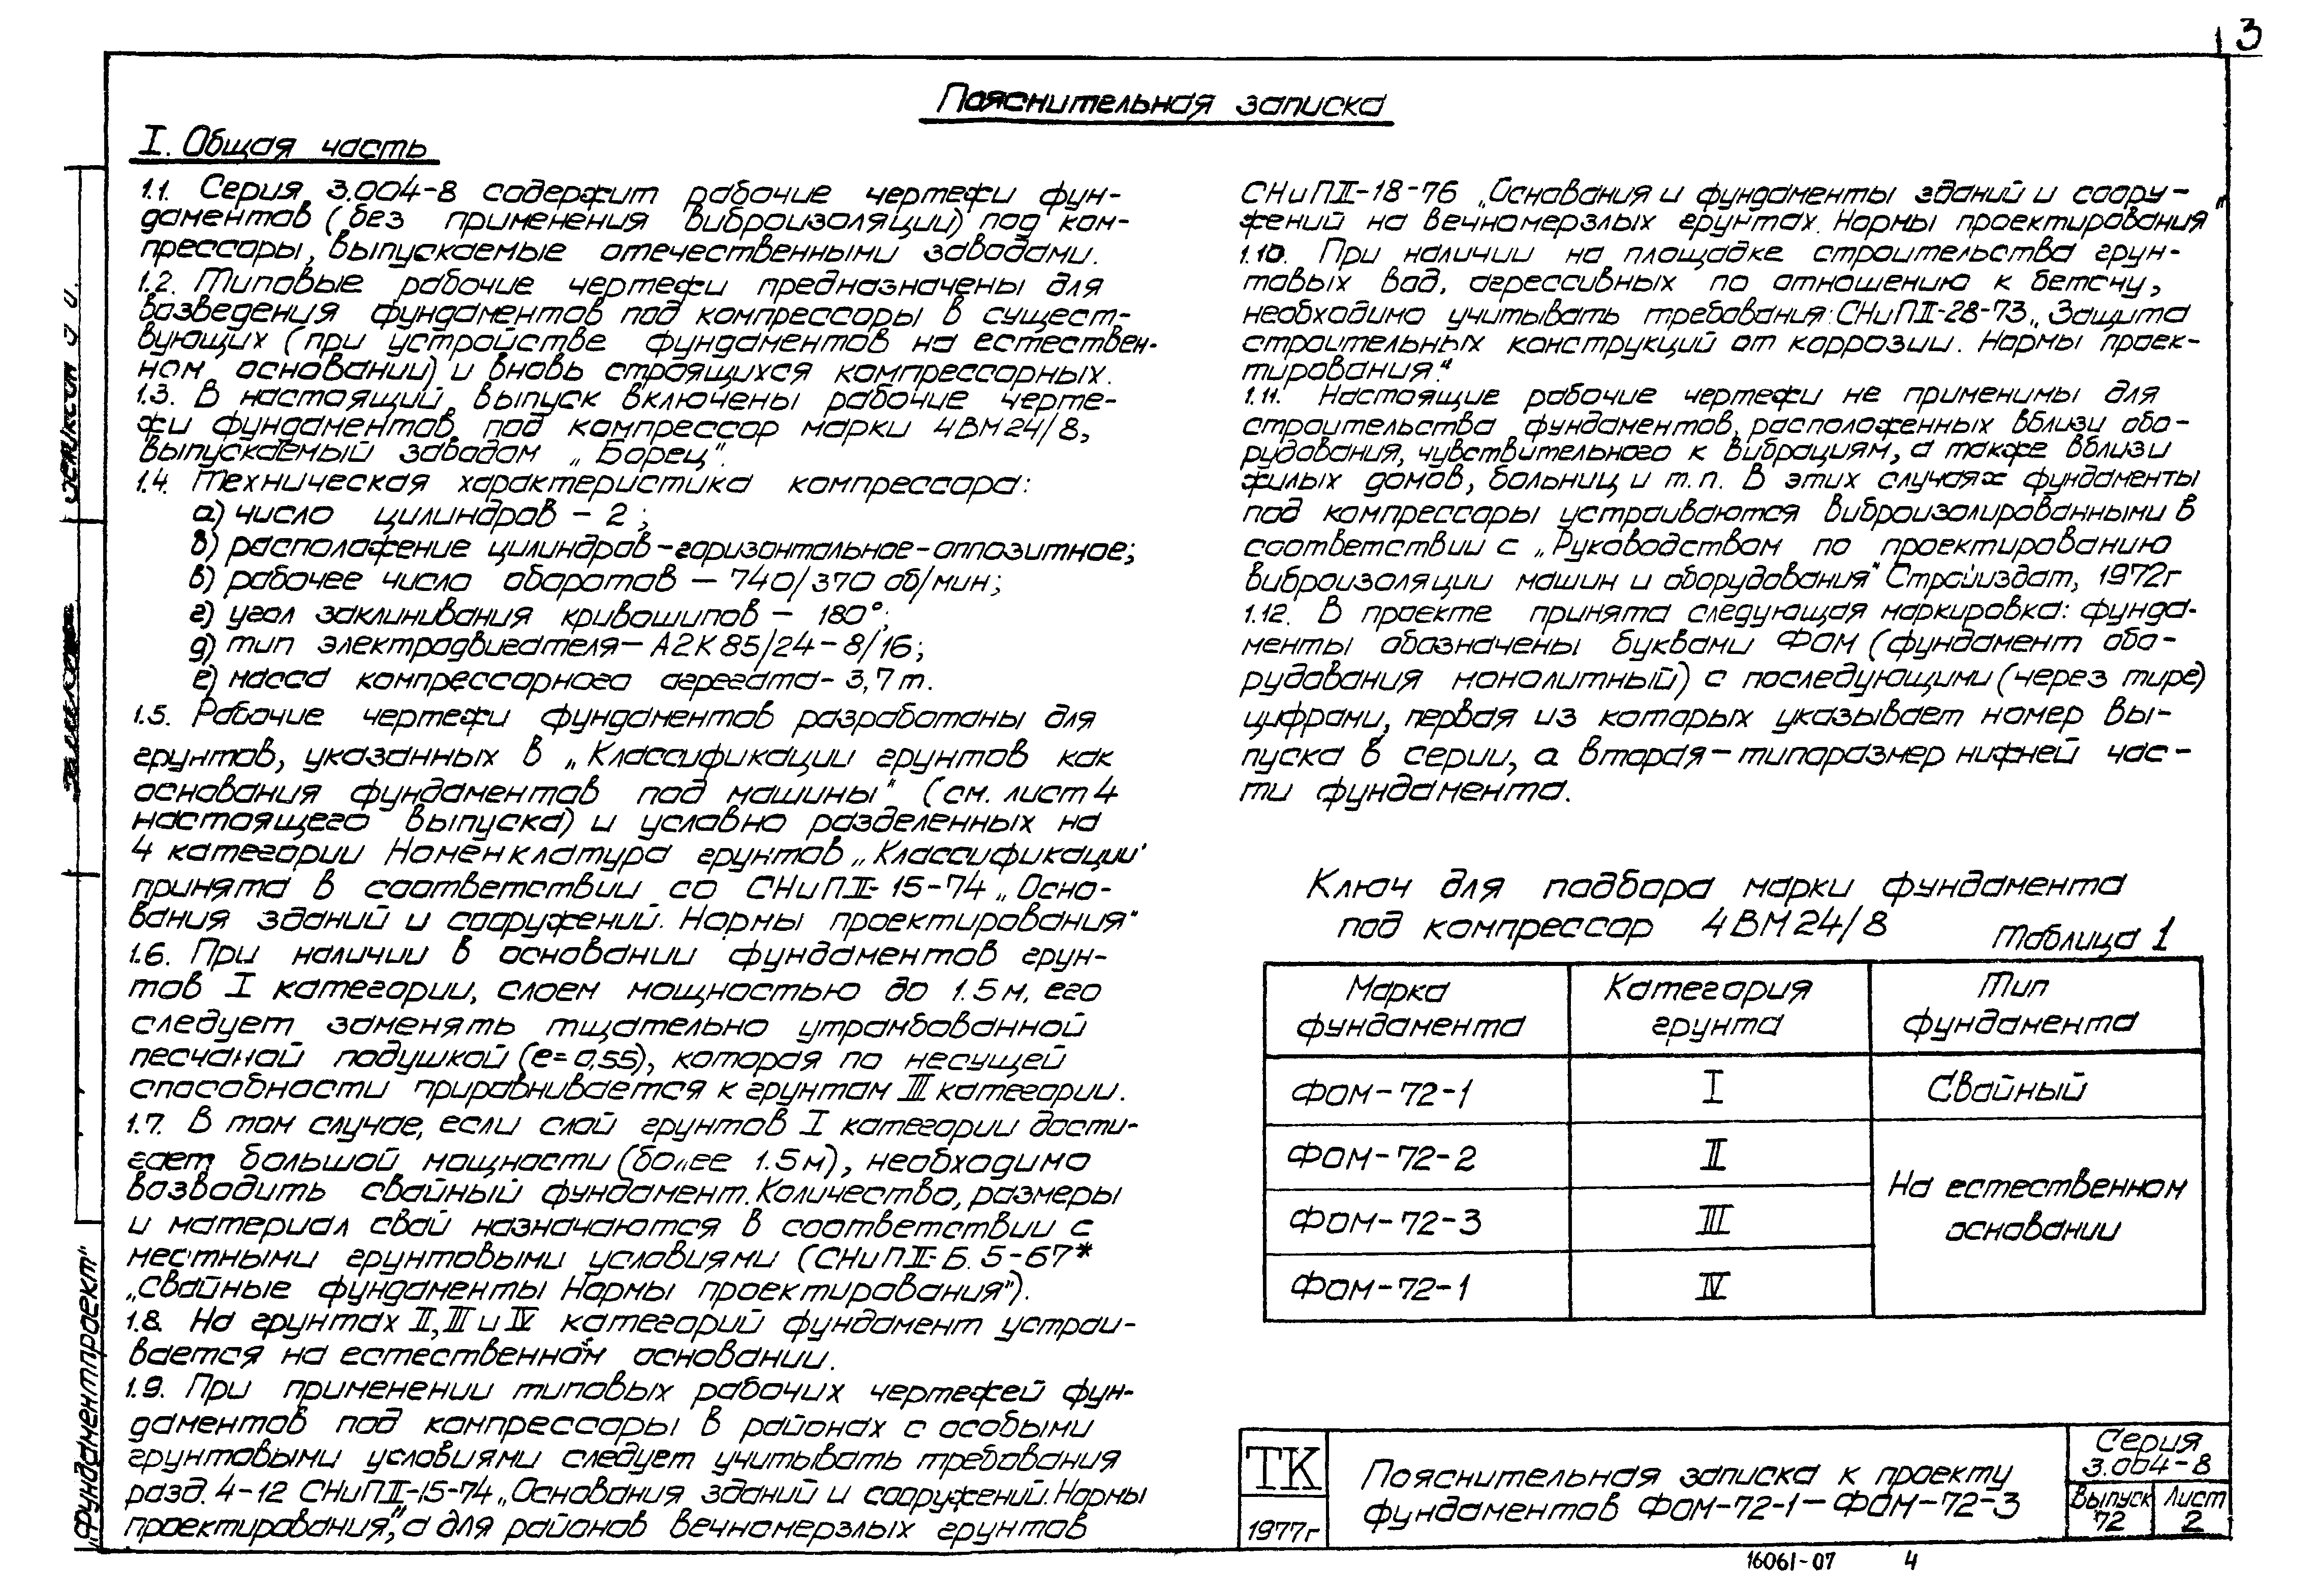 3
Пояснительная записка
I. Общая часть
1.1. Серия 3.004-8 содержит рабочие чертежи фун-
даментов (без применения виброизоляции) под ком-
прессоры, выпускаемые отечественными заводами.
1.2. Типовые рабочие чертежи предназначены для
возведения фундаментов под компрессоры в сущест-
вующих (при устройстве фундаментов на естествен-
ном основании) и вновь строящихся компрессорных.
1.3. В настоящий выпуск включены рабочие черте-
жи фундаментов под компрессор марки 4ВМ24/8,
выпускаемый заводом „Борец".
1.4. Техническая характеристика компрессора:
а) число цилиндров - 2;
б) расположение цилиндров - горизонтальное - оппозитное;
в) рабочее число оборотов — 740/370 об/мин;
г) угол заклинивания кривошипов — 180°;
д) тип электродвигателя — А2К85/24-8/16;
е) масса компрессорного агрегата - 3,7т.
1.5. Рабочие чертежи фундаментов разработаны для
грунтов, указанных в „Классификации грунтов как
основания фундаментов под машины" (см. лист 4
настоящего выпуска) и условно разделенных на
4 категории Номенклатура грунтов „Классификации"
принята в соответствии со СНиП II-15-74 „Осно-
вания зданий и сооружений. Нормы проектирования"
1.6. При наличии в основании фундаментов грун-
тов I категории, слоем мощностью до 1.5м, его
следует заменять тщательно утрамбованной
песчаной подушкой (е=0,55), которая по несущей
способности приравнивается к грунтам III категории.
1.7. В том случае, если слой грунтов I категории дости-
гает большой мощности (более 1.5м), необходимо
возводить свайный фундамент. Количество, размеры
и материал свай назначаются в соответствии с
местными грунтовыми условиями (СНиП II-Б. 5-67*
„Свайные фундаменты Нормы проектирования").
1.8. На грунтах II, III и IV категорий фундамент устраи-
вается на естественном основании.
1.9. При применении типовых рабочих чертежей фун-
даментов под компрессоры в районах с особыми
грунтовыми условиями следует учитывать требования
разд. 4-12 СНиП II-15-74 „Основания зданий и сооружений. Нормы
проектирования", а для районов вечномерзлых грунтов
СНиП II-18-76 „Основания и фундаменты зданий и соору-
жений на вечномерзлых грунтах. Нормы проектирования"
1.10. При наличии на площадке строительства грун-
товых вод, агрессивных по отношению к бетону,
необходимо учитывать требования: СНиП II-28-73 „Защита
строительных конструкций от коррозии. Нормы проек-
тирования."
1.11. Настоящие рабочие чертежи не применимы для
строительства фундаментов, расположенных вблизи обо-
рудования, чувствительного к вибрациям, а также вблизи
жилых домов, больниц и т.п. В этих случаях фундаменты
под компрессоры устраиваются виброизолированными в
соответствии с „Руководством по проектированию
виброизоляции машин и оборудования" Стройиздат, 1972г
1.12. В проекте принята следующая маркировка: фунда-
менты обозначены буквами ФОМ (фундамент обо-
рудования монолитный) с последующими (через тире)
цифрами, первая из которых указывает номер вы-
пуска в серии, а вторая - типоразмер нижней час-
ти фундамента.
Ключ для подбора марки фундамента
под компрессор 4ВМ24/8
Таблица 1
Марка фундамента Категория грунта Тип фундамента
ФОМ-72-1 I Свайный
ФОМ-72-2 II На естественном основании
ФОМ-72-3 III
ФОМ-72-1 IV
ТК
1977г
Пояснительная записка к проекту
фундаментов ФОМ-72-1 — ФОМ-72-3
Серия
3.004-8
Выпуск 72
Лист 2
16061-07 4
„Фундаментпроект"